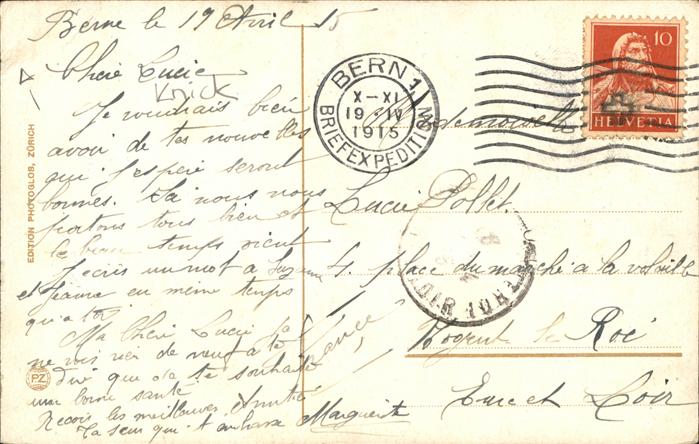 Berne le 19 Avril 15
Chère Lucie
Knick
Je voudrais bien
avoir de tes nouvelles
qui j'espère seront
bonnes. Ici nous nous
portons tous bien et
le beau temps vient
J'écris un mot à Suzanne
et Jeanne en même temps
qu'a toi
Ma Chère Lucie je
ne vois rien de neuf a te
dire que de te souhaiter
une bonne santé
Reçois les meilleures amitiés
Ta seur qui t'embrasse Marguerite
EDITION PHOTOGLOB, ZÜRICH
PZ
BERN 1
X-XI
19 IV
1915
BRIEFEXPEDITION
10
HELVETIA
Mademoiselle
Lucie Pollet
4 place du marché à la volaille
Nogent le Roi
Eure et Loir
France